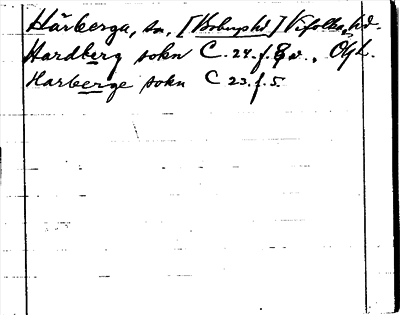 Härberga, sn, [Bobergshd] Vifolka hd.
Hardberg sokn C. 24. f. 8 v., Ögl.
Harberge sokn C 23. f. 5.